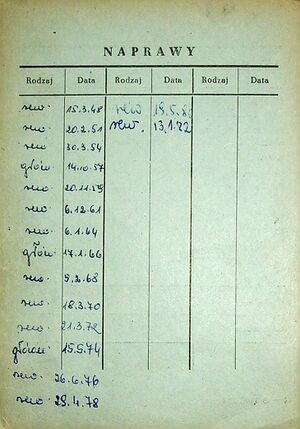 NAPRAWY
Rodzaj Data Rodzaj Data Rodzaj Data
rew. 15.3.48 rew 19.5.8
rew. 20.2.51 rew. 13.1.82
rew 30.3.54
głów. 14.10.57
rew. 20.11.59
rew. 6.12.61
rew. 6.1.64
głów. 17.1.66
rew. 9.2.68
rew. 18.3.70
rew. 21.3.72
główn. 15.5.74
rew. 26.6.76
rew. 29.4.78